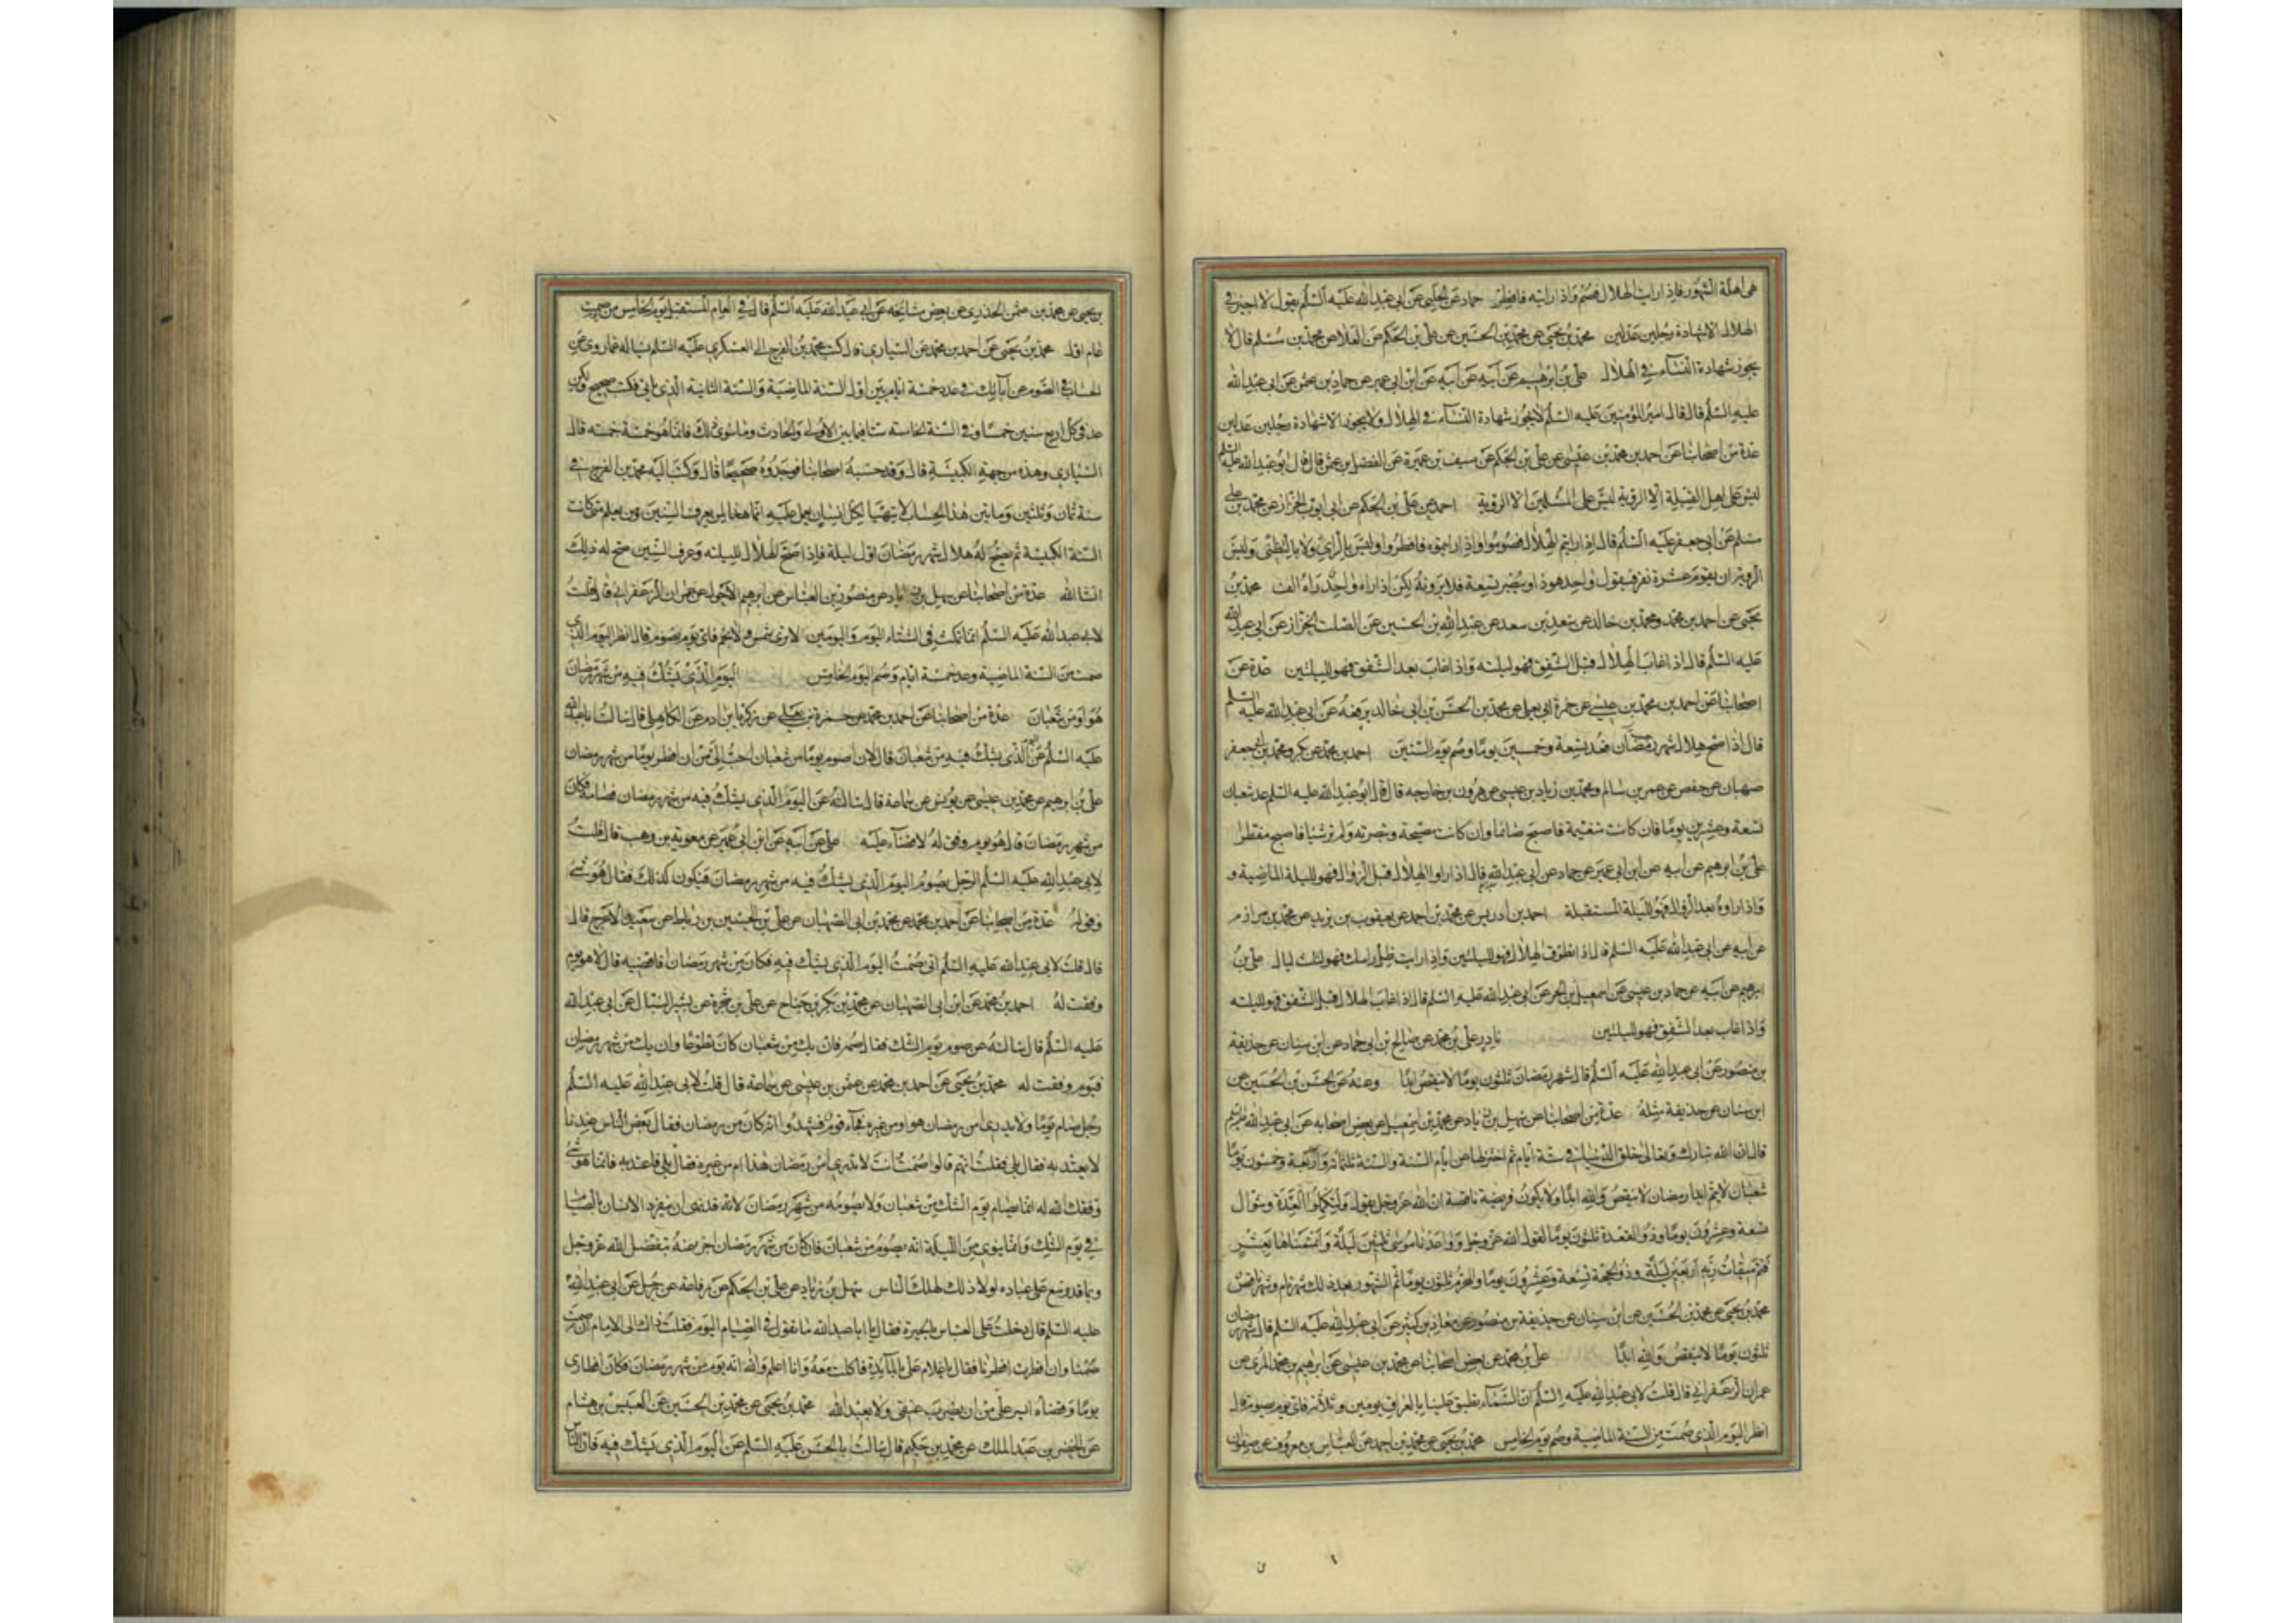 هى اهلة الشهور فاذا رايت الهلال فصم واذا رايته فافطر حماد عن الحلبى عن ابى عبد الله عليه السلم يقول لا اجيز فى
الهلال الا شهادة رجلين عدلين محمد بن يحيى عن محمد بن الحسين عن على بن الحكم عن العلا عن محمد بن مسلم قال لا
يجوز شهادة النسآء فى الهلال على بن ابرهيم عن ابيه عن ابن ابى عمير عن حماد بن عثمن عن ابى عبد الله
عليه السلم قال قال امير المؤمنين عليه السلم لا يجوز شهادة النسآء فى الهلال ولا يجوز الا شهادة رجلين عدلين
عدة من اصحابنا عن احمد بن محمد بن عيسى عن على بن الحكم عن سيف بن عميرة عن الفضل بن عثمن قال قال ابو عبد الله عليه السلم
ليس على اهل القبلة الا الروية ليس على المسلمين الا الروية احمد عن على بن الحكم عن ابى ايوب الخزاز عن محمد بن
مسلم عن ابى جعفر عليه السلم قال اذا رايتم الهلال فصوموا واذا رايتموه فافطروا وليس بالراى ولا بالتظنى وليس
الروية ان يقوم عشرة نفر فيقول واحد هوذا وينظر تسعة فلا يرونه لكن اذا راه واحد راه الف محمد بن
يحيى عن احمد بن محمد ومحمد بن خالد عن سعد بن سعد عن عبد الله بن الحسين عن الصلت الخزاز عن ابى عبد الله
عليه السلم قال اذا غاب الهلال قبل الشفق فهو لليلته واذا غاب بعد الشفق فهو لليلتين عدة عن
اصحابنا عن احمد بن محمد بن عيسى عن حمزة ابى يعلى عن محمد بن الحسن بن ابى خالد يرفعه عن ابى عبد الله عليه السلم
قال اذا صح هلال شهر رمضان فعد تسعة وخمسين يوما وصم يوم الستين احمد بن محمد عن بكر ومحمد بن ابى
صهبان عن حفص عن عمر بن سالم ومحمد بن زياد بن عيسى عن هرون بن خارجه قال قال ابو عبد الله عليه السلم عد شعبان
تسعة وعشرين يوما فان كانت متغيمة فاصبح صائما وان كانت مصحية وتبصرته ولم تر شيا فاصبح مفطرا
على بن ابرهيم عن ابيه عن ابن ابى عمير عن حماد عن ابى عبد الله قال اذا راوا الهلال قبل الزوال فهو لليلة الماضية و
واذا راوه بعد الزوال فهو لليلة المستقبلة احمد بن ادريس عن محمد بن احمد عن يعقوب بن يزيد عن محمد بن مرازم
عن ابيه عن ابى عبد الله عليه السلم قال اذا تطوق الهلال فهو لليلتين واذا رايت ظل راسك فهو لثلث ليال على بن
ابرهيم عن ابيه عن حماد بن عيسى عن اسمعيل بن الحر عن ابى عبد الله عليه السلم قال اذا غاب الهلال قبل الشفق فهو لليلته
واذا غاب بعد الشفق فهو لليلتين نادر على بن محمد عن صالح بن ابى حماد عن ابن سنان عن حذيفة
بن منصور عن ابى عبد الله عليه السلم قال شهر رمضان ثلثون يوما لا ينقص ابدا وعنه عن الحسن بن الحسين عن
ابن سنان عن حذيفة مثله عدة من اصحابنا عن سهل بن زياد عن محمد بن اسمعيل عن بعض اصحابه عن ابى عبد الله
قال ان الله تبارك وتعالى خلق الدنيا فى ستة ايام ثم اختزلها عن ايام السنة والسنة ثلثمائة واربعة وخمسون يوما
شعبان لا يتم ابدا رمضان لا ينقص والله ابدا ولا يكون فريضة ناقصة ان الله عز وجل يقول ولتكملوا العدة وشوال
تسعة وعشرون يوما وذو القعدة ثلثون يوما لقول الله عز وجل وواعدنا موسى ثلثين ليلة واتممناها بعشر
فتم ميقات ربه اربعين ليلة وذو الحجة تسعة وعشرون يوما والمحرم ثلثون يوما ثم الشهور بعد ذلك شهر تام وشهر ناقص
محمد بن يحيى عن محمد بن الحسين عن ابن سنان عن حذيفة بن منصور عن معاذ بن كثير عن ابى عبد الله عليه السلم قال شهر رمضان
ثلثون يوما لا ينقص والله ابدا على بن محمد عن بعض اصحابنا عن محمد بن عيسى عن ابرهيم بن محمد المزنى عن
عمران الزعفرانى قال قلت لابى عبد الله عليه السلم ان السمآء تطبق علينا بالعراق يومين وثلاثة فاى يوم نصوم قال
انظر اليوم الذى صمت من السنة الماضية وصم يوم الخامس محمد بن يحيى عن محمد بن احمد عن العباس بن معروف عن صفوان
بن يحيى عن محمد بن عثمن الخدرى عن بعض مشايخه عن ابى عبد الله عليه السلم قال صم فى العام المستقبل يوم الخامس من يوم صمت
عام اول محمد بن يحيى عن احمد بن محمد عن السيارى قال كتب محمد بن الفرج الى العسكرى عليه السلم يساله عما روى عن
الحساب فى الصوم عن آبائك فى عد خمسة ايام بين اول السنة الماضية والسنة الثانية الذى ياتى فكتب صحيح ولكن
عد فى كل اربع سنين خمسا وفى السنة الخامسه ستا فيما بين الاولى والحادث وما سوى ذلك فانما هو خمسة خمسه قال
السيارى وهذه من جهة الكبيسة قال وقد حسبه اصحابنا فوجدوه صحيحا قال وكتب اليه محمد بن الفرج فى
سنة ثمان وثلثين ومايتين هذا الحساب لا يتهيا لكل انسان يعمل عليه انما هذا لمن يعرف السنين ومن يعلم متى كانت
السنة الكبيسة ثم يصح له هلال شهر رمضان اول ليلة فاذا صح الهلال لليلته وعرف السنين صح له ذلك
انشا الله عدة من اصحابنا عن سهل بن زياد عن منصور بن العباس عن ابرهيم الاحول عن عمران الزعفرانى قال قلت
لابى عبد الله عليه السلم انما نمكث فى الشتاء اليوم واليومين لا نرى شمس ولا نجم فاى يوم نصوم قال انظر اليوم الذى
صمت من السنة الماضية وعد خمسة ايام وصم اليوم الخامس اليوم الذى يشك فيه من شهر رمضان
هو او من شعبان عدة من اصحابنا عن احمد بن محمد عن حمزة بن يعلى عن زكريا بن ادم عن الكاهلى قال سالت ابا عبد الله
عليه السلم عن الذى يشك فيه من شعبان قال لان اصوم يوما من شعبان احب الى من ان افطر يوما من شهر رمضان
على بن ابرهيم عن محمد بن عيسى عن يونس عن سماعة قال سالته عن اليوم الذى يشك فيه من شهر رمضان فصامه فكان
من شهر رمضان قال هو يوم وفق له لا قضآء عليه على عن ابيه عن ابن ابى عمير عن معوية بن وهب قال قلت
لابى عبد الله عليه السلم الرجل يصوم اليوم الذى يشك فيه من شهر رمضان فيكون كذلك فقال هو شئ
وفق له عدة من اصحابنا عن احمد بن محمد عن محمد بن ابى الصهبان عن على بن الحسين بن رباط عن سعيد الاعرج قال
قال قلت لابى عبد الله عليه السلم انى صمت اليوم الذى يشك فيه فكان من شهر رمضان افاقضيه قال لا هو يوم
وفقت له احمد بن محمد عن ابن ابى الصهبان عن محمد بن بكر بن جناح عن على بن شجرة عن بشير النبال عن ابى عبد الله
عليه السلم قال سالته عن صوم يوم الشك فقال صمه فان يك من شعبان كان تطوعا وان يك من شهر رمضان
فيوم وفقت له محمد بن يحيى عن احمد بن محمد عن عثمن بن عيسى عن سماعة قال قلت لابى عبد الله عليه السلم
رجل صام يوما ولا يدرى امن رمضان هو او من غيره فجآء قوم فشهدوا انه كان من رمضان فقال بعض الناس عندنا
لا يعتد به فقال بلى فقلت انهم قالوا صمت وانت لا تدرى امن رمضان هذا ام من غيره فقال بلى فاعتد به فانما هو شئ
وفقك الله له انما يصام يوم الشك من شعبان ولا يصومه من شهر رمضان لانه قد نهى ان ينفرد الانسان بالصيام
فى يوم الشك وانما ينوى من الليلة انه يصوم من شعبان فان كان من شهر رمضان اجزا عنه بتفضل الله عز وجل
وبما قد وسع على عباده لولا ذلك لهلك الناس سهل بن زياد عن على بن الحكم عن رفاعة عن رجل عن ابى عبد الله
عليه السلم قال دخلت على العباس بالحيرة فقال يا ابا عبد الله ما تقول فى الصيام اليوم فقلت ذاك الى الامام ان صمت
صمنا وان افطرت افطرنا فقال يا غلام على بالمآئدة فاكلت معه وانا اعلم والله انه يوم من شهر رمضان فكان افطارى
يوما وقضاه ايسر على من ان يضرب عنقى ولا يعبد الله محمد بن يحيى عن محمد بن الحسين عن العبيس بن هشام
عن الخضر بن عبد الملك عن محمد بن حكيم قال سالت ابا الحسن عليه السلم عن اليوم الذى يشك فيه فان الناس